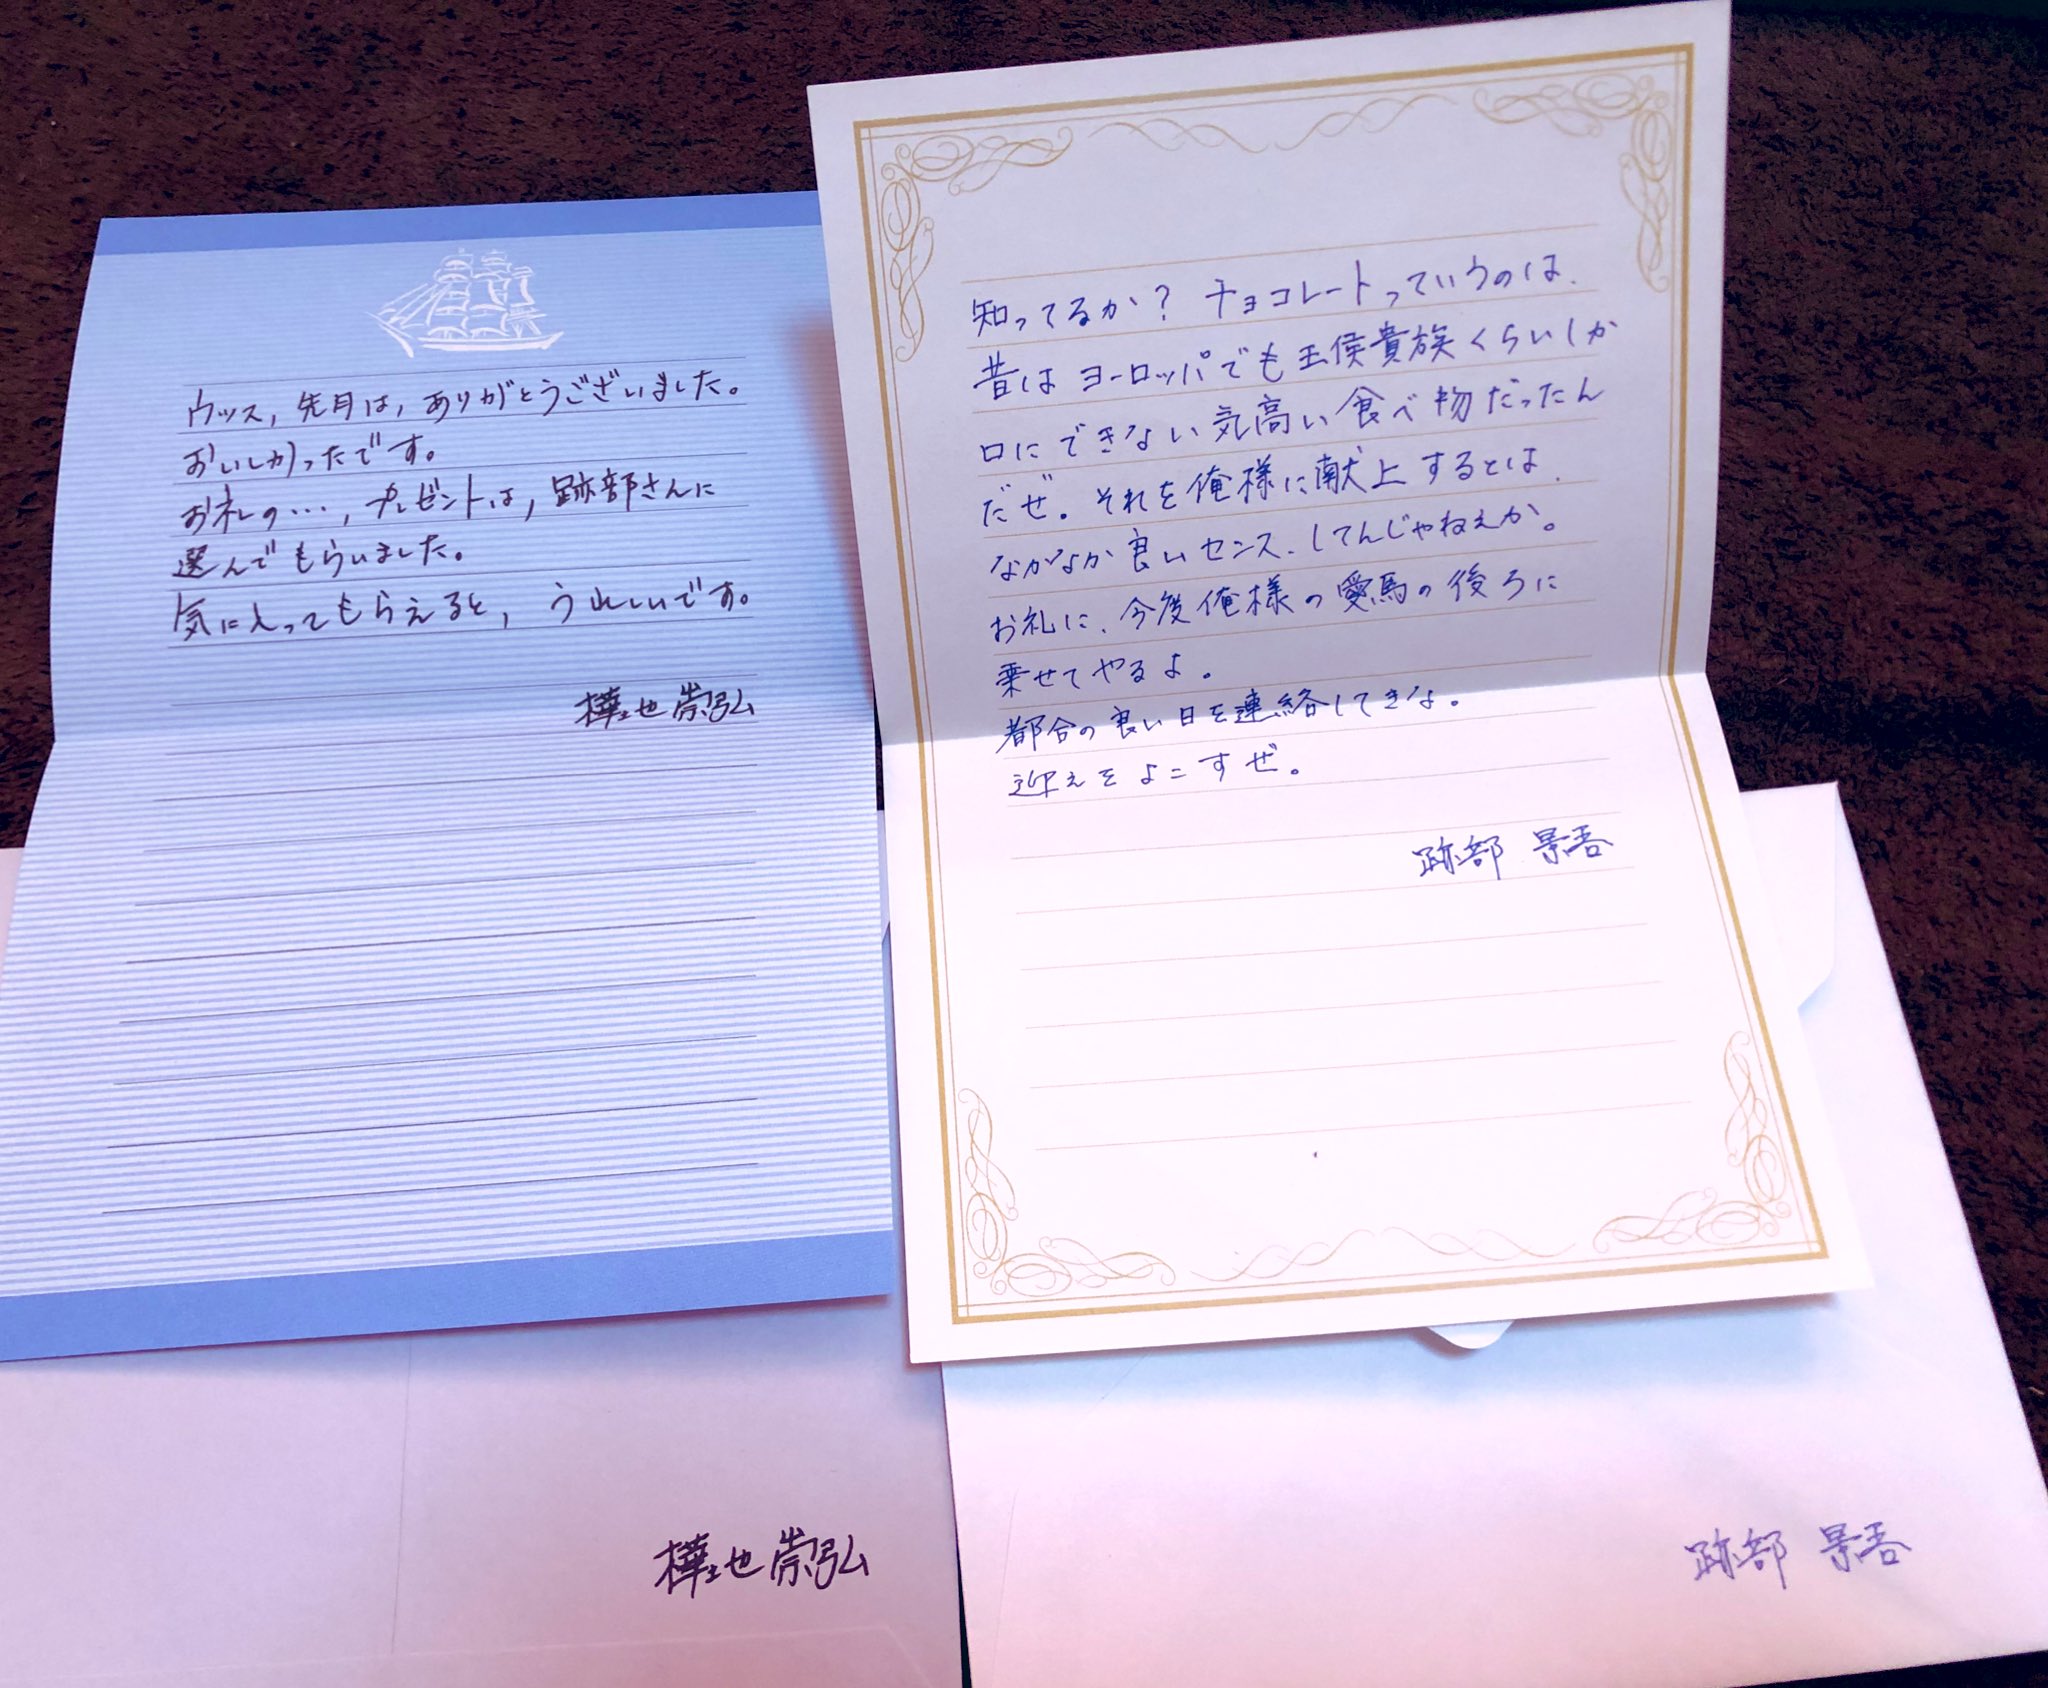 ウッス, 先月は, ありがとうございました。
おいしかったです。
お礼の…, プレゼントは, 跡部さんに
選んでもらいました。
気に入ってもらえると, うれしいです。
樺地崇弘
知ってるか? チョコレートっていうのは、
昔はヨーロッパでも王侯貴族くらいしか
口にできない気高い食べ物だったん
だぜ。それを俺様に献上するとは、
なかなか良いセンス、してんじゃねえか。
お礼に、今度俺様の愛馬の後ろに
乗せてやるよ。
都合の良い日を連絡してきな。
迎えをよこすぜ。
跡部 景吾
樺地崇弘
跡部 景吾